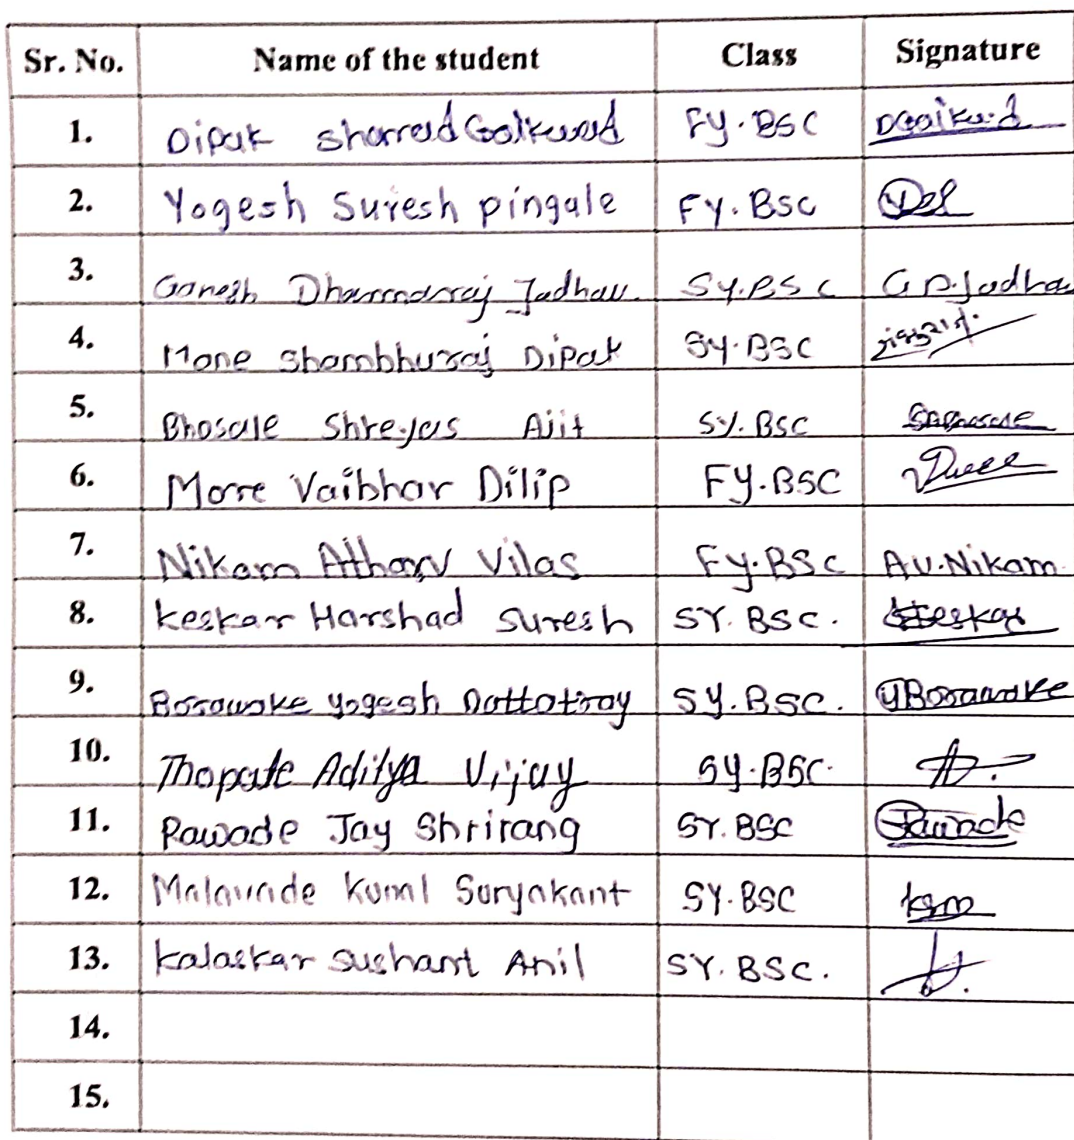 Sr. No. Name of the student Class Signature
1. Dipak sharrad Gaikwad FY.BSC DGaikwad
2. Yogesh Suresh pingale FY.BSC
3. Ganesh Dharmarraj Jadhav. SY.BSC G.D.Jadhav
4. Mane Shambhuraj Dipak SY.BSC
5. Bhosale Shreyas Ajit SY.BSC
6. More Vaibhav Dilip FY.BSC
7. Nikam Atharv Vilas FY.BSC A.V.Nikam.
8. keskar Harshad Suresh SY.BSC. Keskar
9. Borawake yogesh Dattatray SY.BSC. YBorawake
10. Thopate Aditya Vijay SY.BSC.
11. Rawade Jay Shrirang SY.BSC
12. Malavade Kunal Suryakant SY.BSC ksm
13. kalaskar sushant Anil SY.BSC.
14.
15.